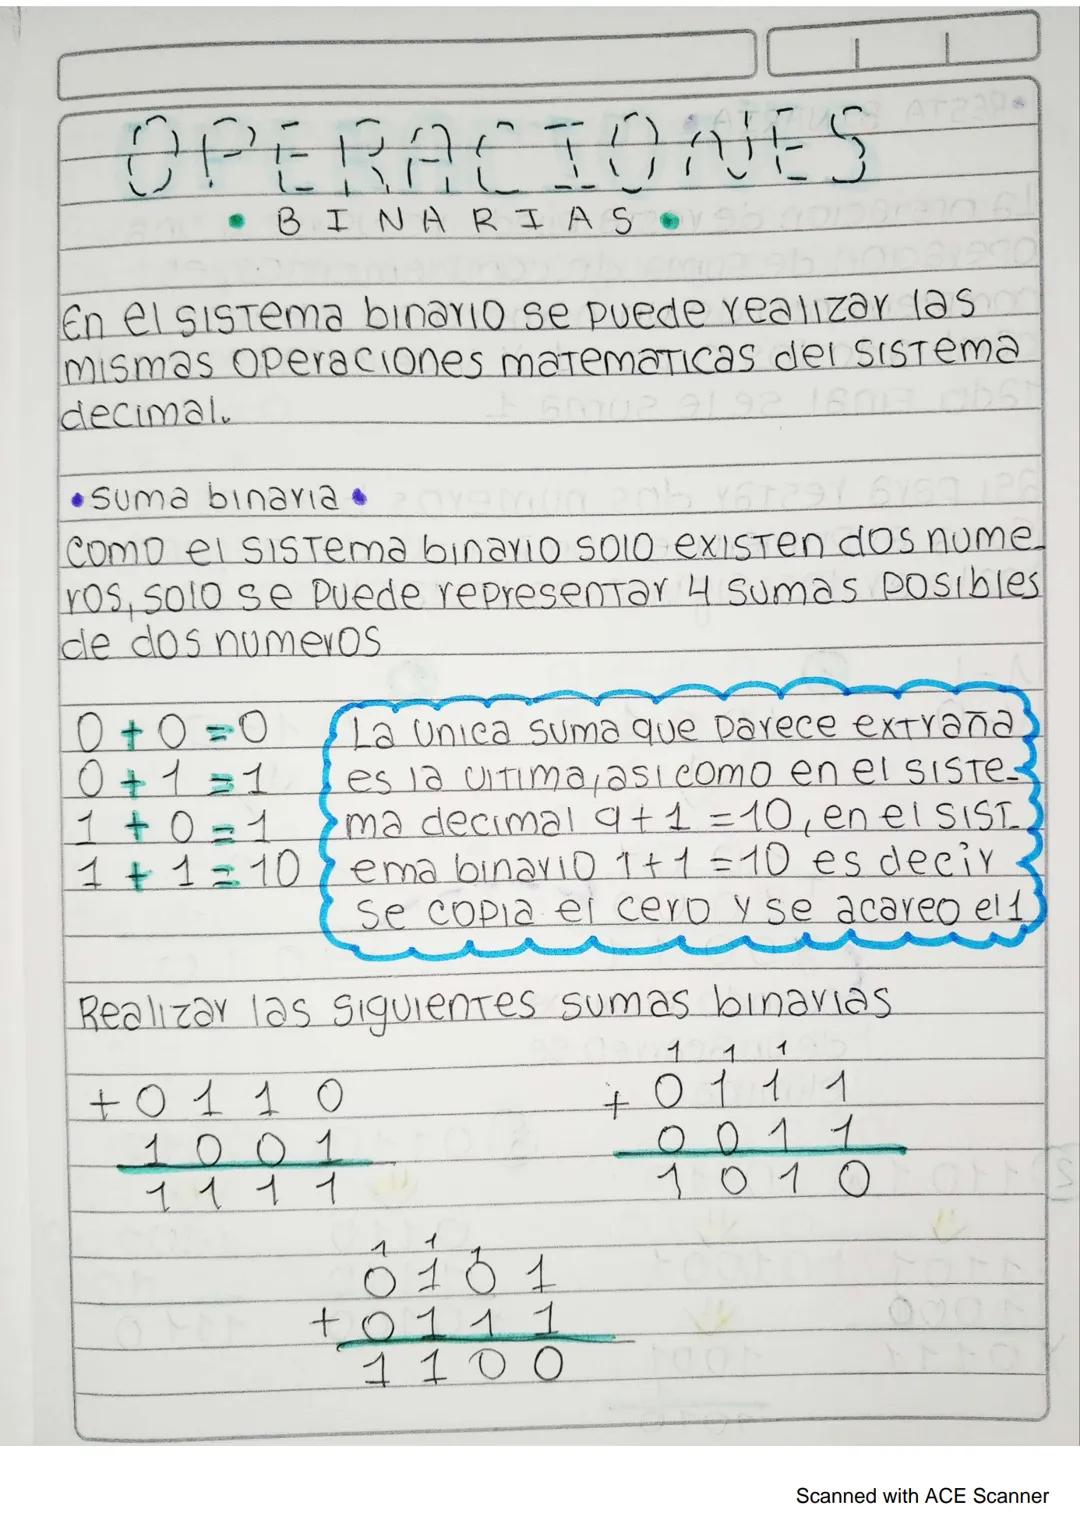 OPERACIONES
• BINARIAS •
En el sistema binario se puede realizar las
mismas operaciones matematicas del sistema
decimal.
• suma binaria •
como el sistema binario solo existen dos nume-
ros, solo se puede representar 4 sumas posibles
de dos numeros
0 + 0 = 0
0 + 1 = 1
1 + 0 = 1
1 + 1 = 10
La unica suma que parece extraña
es la ultima, asi como en el siste-
ma decimal 9 + 1 = 10, en el sist
ema binario 1 + 1 = 10 es decir
se copia el cero y se acareo el 1
Realizar las siguientes sumas binarias
+ 0 1 1 0
1 0 0 1
1 1 1 1
1 1 1
+ 0 1 1 1
0 0 1 1
1 0 1 0
1 1 1
0 1 0 1
+ 0 1 1 1
1 1 0 0
Scanned with ACE Scanner